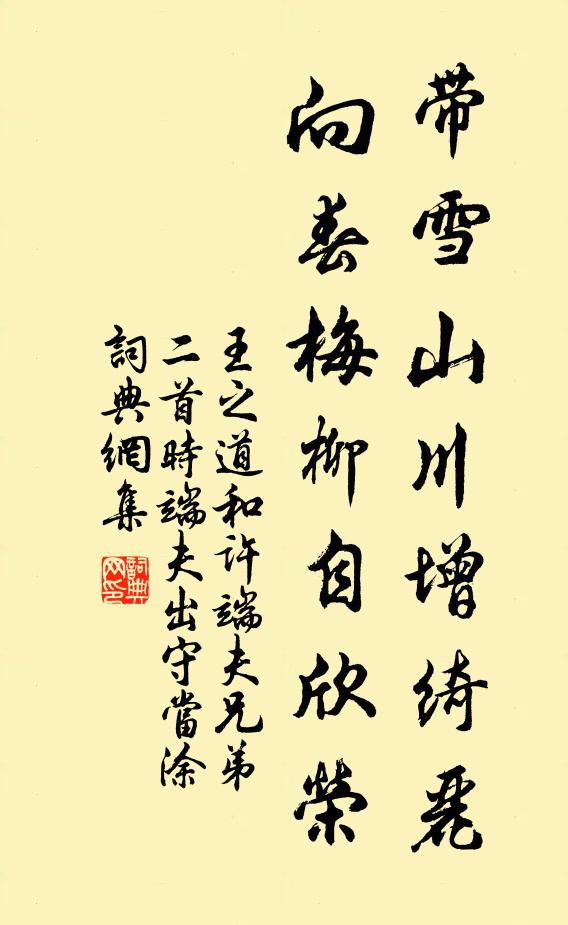 带雪山川增绮麗
向春梅柳自欣榮
王之道和许端夫兄弟
二首時端夫出守當涂
詞典網集
詞典
网印